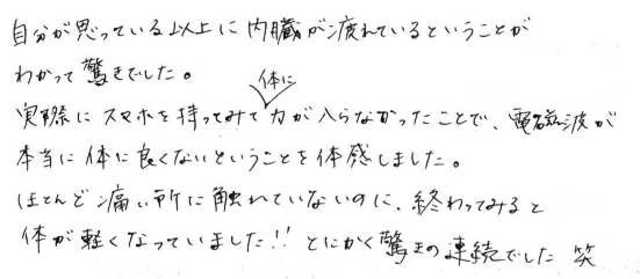 自分が思っている以上に内臓が疲れているということが
わかって驚きでした。
実際にスマホを持ってみて体に力が入らなかったことで、電磁波が
本当に体に良くないということを体感しました。
ほとんど痛い所に触れていないのに、終わってみると
体が軽くなっていました!! とにかく驚きの連続でした 笑